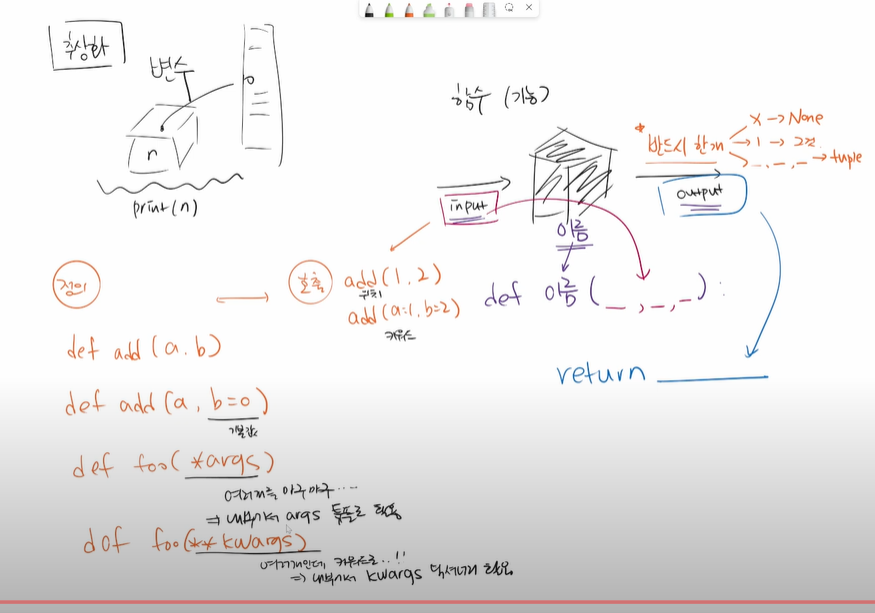 추상화
변수
n
print(n)
함수 (기능)
input
이름
* 반드시 한개
X → None
→ 1 → 그것.
→ _, _, _ → tuple
output
def 이름 ( _ , _ , _ ) :
return
정의
호출
add(1, 2)
위치
add(a=1, b=2)
키워드
def add (a, b)
def add (a, b=0)
기본값
def foo( *args )
여러개를 마구마구....
⇒ 내부에서 args 튜플로 활용
def foo( ** kwargs )
여러개인데, 키워드로..!!
⇒ 내부에서 kwargs 딕셔너리 활용